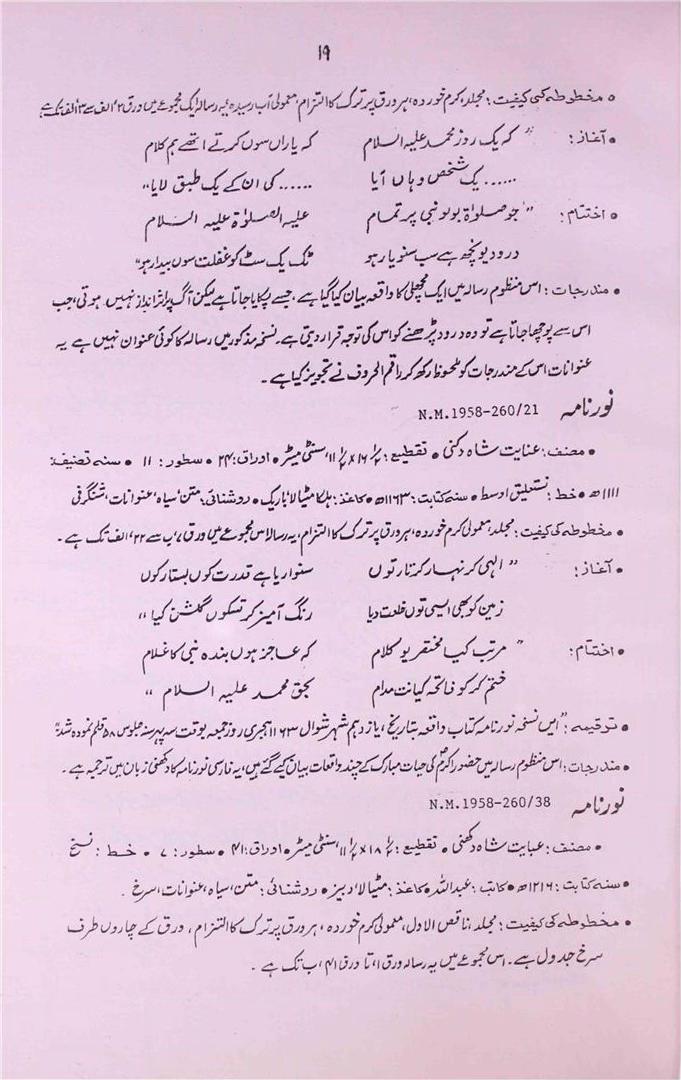 ۱۹
● مخطوطہ کی کیفیت : مجلد، کرم خوردہ، ہر ورق پر ترک کا التزام، معمولی آب رسیدہ، یہ رسالہ ایک مجموعے میں ورق ۲' الف سے ۳' الف تک ہے
● آغاز : " کہ یک روز محمد علیہ السلام کہ یاراں سوں کرتے اتھے ہم کلام
...... یک شخص وہاں آیا ...... کی ان کے یک طبق لایا "
● اختتام : " جو صلواۃ بولو نبی پر تمام علیہ الصلوٰۃ علیہ السلام
درود یونچھ ہے سب سنو یار ہو ٹک یک سٹ کو غفلت سوں بیدار ہو "
● مندرجات : اس منظوم رسالہ میں ایک مچھلی کا واقعہ بیان کیا گیا ہے، جسے پکایا جاتا ہے لیکن آگ پر اثر انداز نہیں ہوتی، جب
اس سے پوچھا جاتا ہے تو وہ درود پڑھنے کو اس کی توجہ قرار دیتی ہے۔ نسخہ مذکور میں رسالہ کا کوئی عنوان نہیں ہے یہ
عنوانات اس کے مندرجات کو ملحوظ رکھ کر راقم الحروف نے تجویز کیا ہے۔
نور نامہ N.M.1958-260/21
● مصنف : عنایت شاہ دکنی ● تقطیع : ۱/۲ ۱۶ × ۱/۲ ۱۱، سنٹی میٹر ● اوراق : ۲۴ ● سطور : ۱۱ ● سنہ تصنیف :
۱۱۱۱ھ ● خط : نستعلیق اوسط ● سنہ کتابت : ۱۱۶۳ھ ● کاغذ : ہلکا مٹیالا، باریک ● روشنائی : متن، سیاہ، عنوانات، شنگرفی
● مخطوطہ کی کیفیت : مجلد، معمولی کرم خوردہ، ہر ورق پر ترک کا التزام، یہ رسالہ اس مجموعے میں ورق ۷، ب سے ۲۲، الف تک ہے۔
● آغاز : " الہی کر نہار کرتار توں سنواریا ہے قدرت کوں بستار کوں
زمین کو بھی ایسی توں خلعت دیا رنگ آمیز کر تسکوں گلشن کیا "
● اختتام : " مرتب کیا مختصر یو کلام کہ عاجز ہوں بندہ نبی کا غلام
ختم کر کو فاتحہ کیانت مدام بحق محمد علیہ السلام "
● ترقیمہ : " ایں نسخہ نور نامہ کتاب واقعہ بتاریخ، یازدہم شہر شوال ۱۱۶۳ ہجری روز جمعہ بوقت سہ پہر سنہ جلوس ۵۸ قلم نمودہ شد "
● مندرجات : اس منظوم رسالہ میں حضور اکرمؐ کی حیات مبارک کے چند واقعات بیان کیے گئے ہیں، یہ فارسی نور نامہ کا دکھنی زبان میں ترجمہ ہے۔
نور نامہ N.M.1958-260/38
● مصنف : عنایت شاہ دکھنی ● تقطیع : ۱/۲ ۱۸ × ۱/۲ ۱۱، سنٹی میٹر ● اوراق : ۴۱ ● سطور : ۷ ● خط : نسخ
● سنہ کتابت : ۱۲۱۶ھ ● کاتب : عبداللہ ● کاغذ : مٹیالا، دبیز ● روشنائی : متن، سیاہ، عنوانات، سرخ۔
● مخطوطہ کی کیفیت : مجلد، ناقص الاول، معمولی کرم خوردہ، ہر ورق پر ترک کا التزام، ورق کے چاروں طرف
سرخ جدول ہے۔ اس مجموعے میں یہ رسالہ ورق ۱، تا ورق ۴۱، ب تک ہے۔